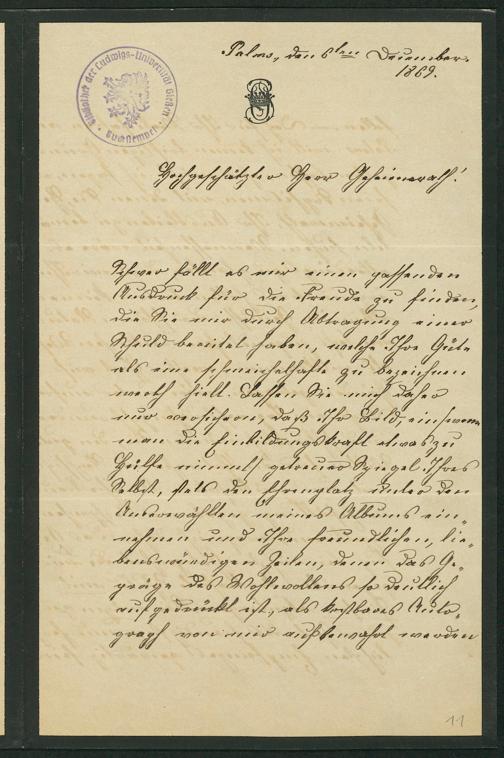 Palms, den 6ten December
1869.
Bibliothek der Ludwigs-Universität Gießen
Hochgeschätzter Herr Geheimerath!
Schwer fällt es mir einen passenden
Ausdruck für die Freude zu finden,
die Sie mir durch Abtragung einer
Schuld bereitet haben, welche Ihre Güte
als eine schmeichelhafte zu bezeichnen
werth hielt. Lassen Sie mich daher
nur versichern, daß Ihr Bild, ein (wenn
man die Einbildungskraft etwas zu
Hülfe nimmt) getreuer Spiegel Ihres
Selbst, stets den Ehrenplatz unter den
Auserwählten meines Albums ein-
nehmen und Ihre freundlichen, lie-
benswürdigen Zeilen, denen das Ge-
präge des Wohlwollens so deutlich
aufgedrückt ist, als kostbares Auto-
graph von mir aufbewahrt werden
11